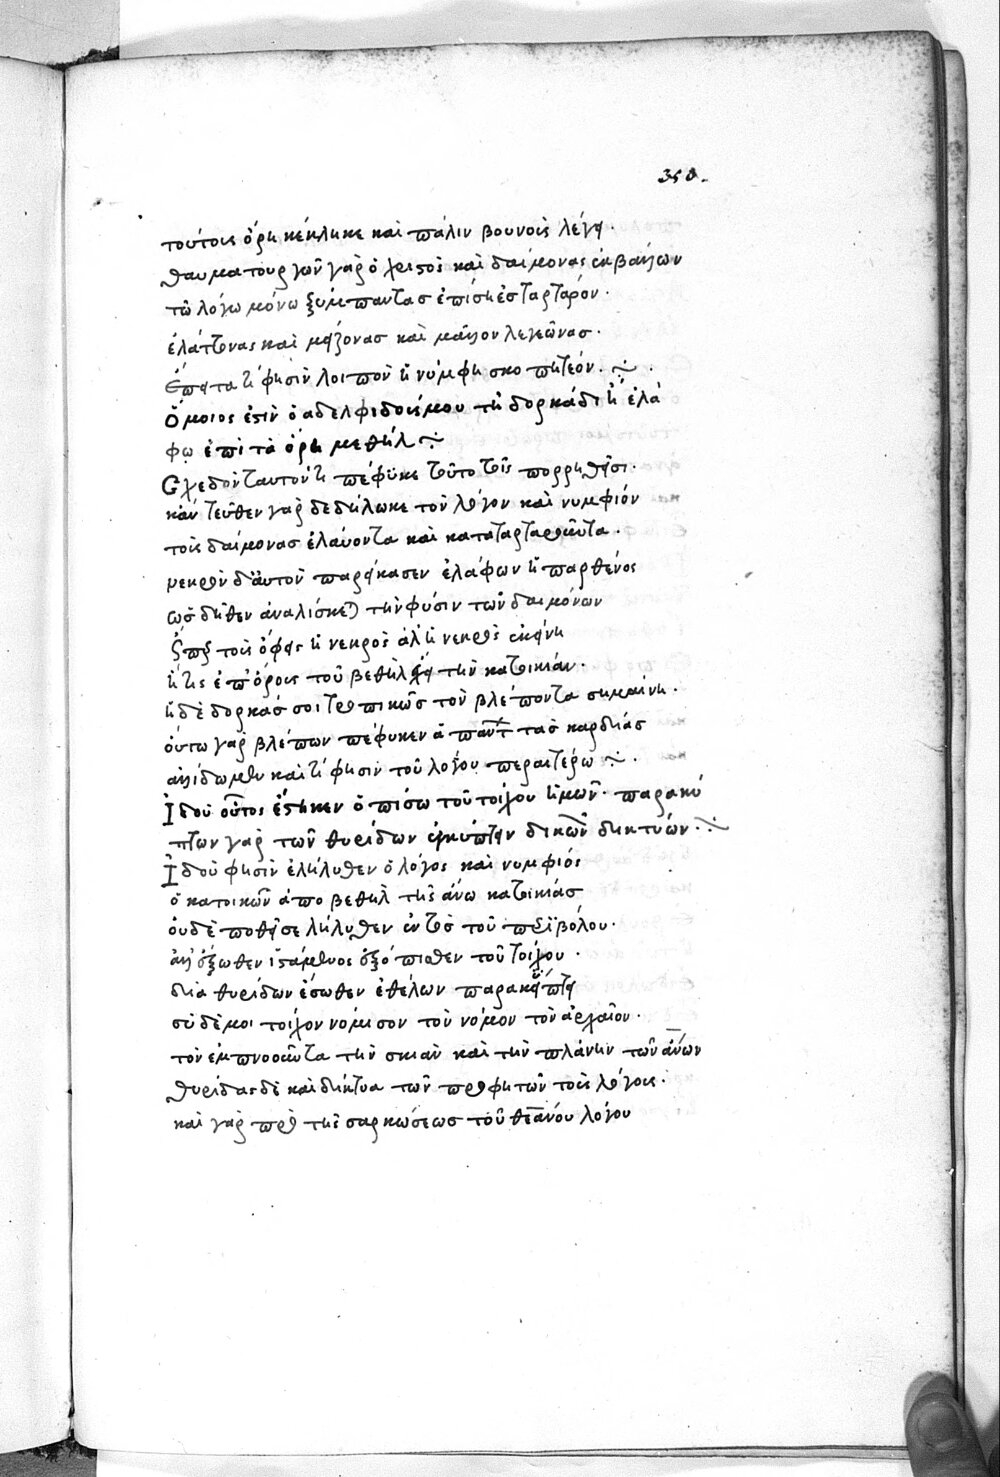 350.
τούτοις ὄρη κέκληκε καὶ πάλιν βουνοῖς λέγει·
θαυματουργῶν γὰρ ὁ χριστὸς καὶ δαίμονας ἐκβάλλων
τῶ λόγω μόνω ξύμπαντας ἐπὶ
ἐλάττονας καὶ μείζονας καὶ μᾶλλον λεγεῶνας·
ἔπειτα τί φησὶν λοιπὸν ἡ νύμφη σκοπητέον·
Ὅμοιος ἐστὶν ὁ αδελφιδοῦς μου τῆ δορκάδι ἢ ἐλά
φω ἐπὶ τὰ ὄρη μεθήλ
Σχεδὸν ταυτόν τι πέφυκε τοῦτο τοῖς πορρηθεῖσι·
κἀντεῦθεν γὰρ δεδήλωκε τὸν λόγον καὶ νυμφίον
τοὺς δαίμονας ἐλαύοντα καὶ καταταρταροῦντα·
νεκρὸν δ' αὐτὸν παρείκασεν ἐλάφων ἡ παρθένος
ὡς δῆθεν ἀναλίσκει τὴν φύσιν τῶν δαιμόνων
τοὺς ὄφεις ἡ νεκρὸς ἀλλ' ἡ νεκρὸς ἐκείνη
ἥτις ἐπ' ὄροις τοῦ βεθὴλ ἔχει τὴν κατοικίαν·
ἡ δὲ δορκάς σοι τροπικῶς τὸν βλέποντα σημαίνει·
οὕτω γὰρ βλέπων πέφυκεν ἁπάντων τὰς καρδίας
ἀλλ' ἴδωμεν καὶ τί φησιν τοῦ λόγου περαιτέρω
Ἰδοὺ οὗτος ἕστηκεν ὀπίσω τοῦ τοίχου ἡμῶν· παρακύ
πτων γὰρ τῶν θυρίδων ἐκκύπτων δικῶν δηκτυών·
Ἰδοὺ φησὶν ἐλήλυθεν ὁ λόγος καὶ νυμφίος
ὁ κατοικῶν ἀπο βεθὴλ τῆς ἄνω κατοικίας
οὐδέποθεν εἰσελήλυθεν ἐντὸς τοῦ περιβόλου·
ἀλλ' ἔξωθεν ἱστάμενος ἐξόπισθεν τοῦ τοίχου·
δια θυρίδων ἔσωθεν ἐθέλων παρακύπτει
σὺ δέ μοι τοίχον νόμισον τὸν νόμον τὸν ἀρχαῖον·
τὸν ἐμπνοοῦντα τὴν σκιὰν καὶ τὴν πλάνην τῶν ἀν̅ων
θυρίδας δὲ καὶ δίκτυα τῶν προφητῶν τοὺς λόγους·
καὶ γὰρ πρὸ τῆς σαρκώσεως τοῦ θεαν̅ου λόγου